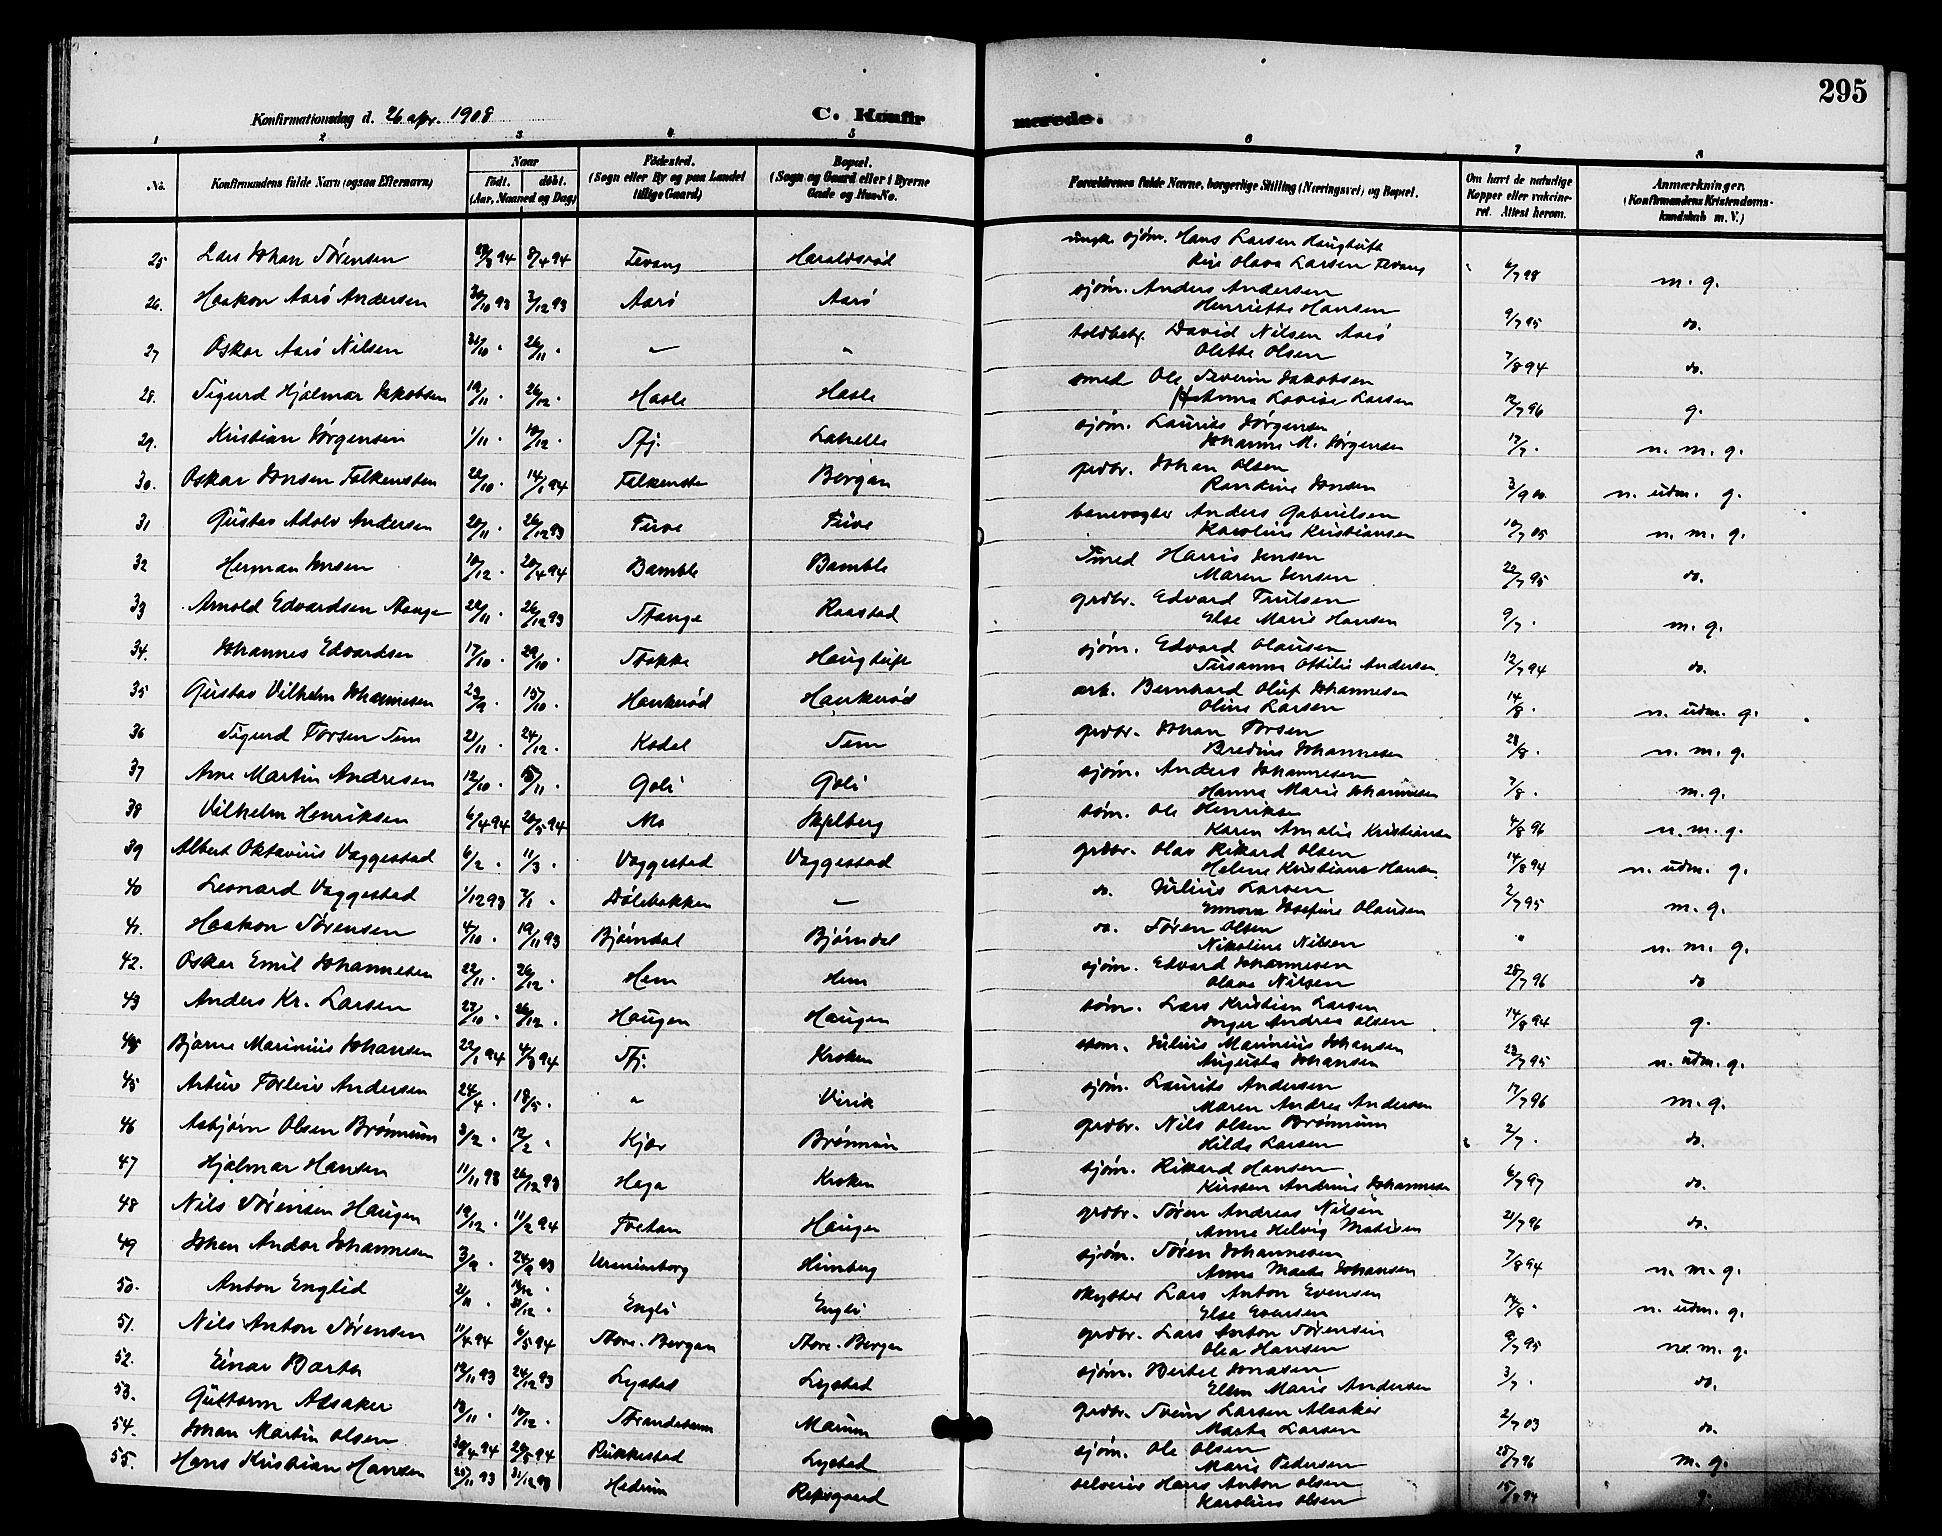 295
Konfirmationsdag d. 26 apr. 1908
C. Konfirmerede.
1 2 3 4 5 6 7 8
No. Konfirmandens fulde Navn (ogsaa Efternavn) Naar født. døbt. (Aar, Maaned og Dag) Fødested. (Sogn eller By og paa Landet tillige Gaard) Bopæl. (Sogn og Gaard eller i Byerne Gade og Hus-No. Forældrenes fulde Navne, borgerlige Stilling (Næringsvei) og Bopæl. Om havt de naturlige Kopper eller vakcineret. Attest herom. Anmærkninger. (Konfirmandens Kristendomskundskab m. V.)
25 Lars Johan Sørensen 8/4 94 Fevang Haraldsrød ungk. sjøm. Hans Larsen Haugtuft
Olava Larsen Fevang 6/7 98 m. g.
26. Haakon Aarø Andersen 30/10 93 3/12 93 Aarø Aarø sjøm. Anders Andersen
Henriette Hansen 9/7 95 do.
27 Oskar Aarø Nilsen 31/10 . 26/11 . " " toldbetj. David Nilsen Aarø
Olette Olsen 7/8 94 do.
28. Sigurd Hjalmar Jakobsen 19/11 . 26/12 . Hasle Hasle smed Ole Severin Jakobsen
Anna Lovise Larsen 12/7 96 g.
29. Kristian Jørgensen 1/11 . 10/12 . Sfj. Lahelle sjøm. Laurits Jørgensen
Johanne M. Jørgensen 17/7 . n. m. g.
30. Oskar Jonsen Falkensten 22/10 . 14/1 94 Falkenste Bergan grdbr. Johan Olsen
Randine Jonsen 3/9 00 n. udm. g.
31 Gustav Adolv Andersen 20/11 . 26/12 93 Furve Furve banevogter Anders Gabrielsen
Karoline Kristiansen 10/7 05 n. m. g.
32 Herman Jensen 10/12 . 20/4 94 Bamble Bamble Smed Harris Jensen
Maren Jensen 22/7 95 do.
33 Arnold Edvardsen Stange 22/11 . 26/12 93 Stange Raastad grdbr. Edvard Trulsen
Else Marie Hansen 9/7 . m. g.
34. Johannes Edvardsen 17/10 . 29/10 . Stokke Haugtuft sjøm. Edvard Olausen
Susanna Ottilie Andersen 12/7 94 do.
35 Gustav Vilhelm Johannesen 23/9 . 15/10 . Haukerød Haukerød arb. Bernhard Oluf Johannesen
Oline Larsen 14/8 . n. udm. g.
36 Sigurd Torsen Sem 21/11 . 24/12 . Kodal Sem grdbr. Johan Torsen
Bredine Johannesen 28/8 . n. m. g.
37 Arne Martin Andresen 12/10 . Goli Goli sjøm. Anders Johannesen
Hanna Marie Johannesen 7/8 . m. g.
38 Vilhelm Henriksen 6/4 94 20/5 94 Mo Skjelberg søm. Ole Henriksen
Karen Amalie Kristiansen 4/8 96 n. m. g.
39 Albert Oktavius Vaggestad 6/2 . 11/3 . Vaggestad Vaggestad grdbr. Olav Rikard Olsen
Helene Kristiane Hansen 14/8 94 n. udm. g.
40 Leonard Vaggestad 1/12 93 7/1 . Dølebakken " do. Julius Larsen
Emma Josefine Olausen 2/7 95 m. g.
41. Haakon Sørensen 4/10 . 19/11 93 Bjørndal Bjørndal do. Søren Olsen
Nikoline Nilsen " n. m. g.
42. Oskar Emil Johannesen 22/11 . 26/12 . Hem Hem sjøm. Edvard Johannesen
Olava Nilsen 28/7 96 do
43 Anders Kr. Larsen 27/10 . 26/12 . Haugen Haugen søm. Lars Kristian Larsen
Inger Andrea Olsen 14/8 94 g.
44 Bjarne Marinius Johansen 22/1 94 4/3 94 Sfj. Kroken søm. Julius Marinius Johansen
Augusta Johansen 23/7 95 n. udm. g.
45 Artur Torleiv Andersen 24/4 . 18/5 . " Virik sjøm. Laurits Andersen
Maren Andrea Andersen 17/7 96 m. g.
46 Asbjørn Olsen Brønnum 3/2 . 12/2 . Kjær Brønnum grdbr. Nils Olsen Brønnum
Hilda Larsen 2/7 . do.
47 Hjalmar Hansen 11/11 93 26/12 93 Haga Kroken sjøm. Rikard Hansen
Kirsten Andrine Johannesen 6/7 97 do.
48 Nils Sørensen Haugen 19/12 . 11/2 94 Fostan Haugen grdbr. Søren Andreas Nilsen
Anne Helvig Matisen 21/7 96 do.
49 Johan Andor Johannesen 3/9 . 24/9 93 Himberg sjøm. Søren Johannesen
Anna Johansen 7/8 94 n. m. g.
50. Anton Englid 21/11 . 31/12 . Engli Engli skytter Lars Anton Evensen
Else Evensen 14/8 . n. udm. g.
51. Nils Anton Sørensen 11/4 94 6/5 94 Store-Bergan Store-Bergan grdbr. Lars Anton Sørensen
Olea Hansen 9/7 95 n. m. g.
52. Einar Barta 12/11 93 24/12 93 Lystad Lystad sjøm. Bertel Jonassen
Ellen Marie Andersen 3/7 . do.
53. Guttorm Alsaker 13/11 . 10/12 . Strandebarm Marum grdbr. Svein Larsen Alsaker
Marta Larsen 2/7 03 do.
54. Johan Martin Olsen 30/4 94 20/5 94 Rukkestad Lystad sjøm. Ole Olsen
Marie Pedersen 28/7 96 m. g.
55. Hans Kristian Hansen 25/11 93 31/12 93 Hedrum Repsgaard selveier Hans Anton Olsen
Karoline Olsen 15/8 94 g.